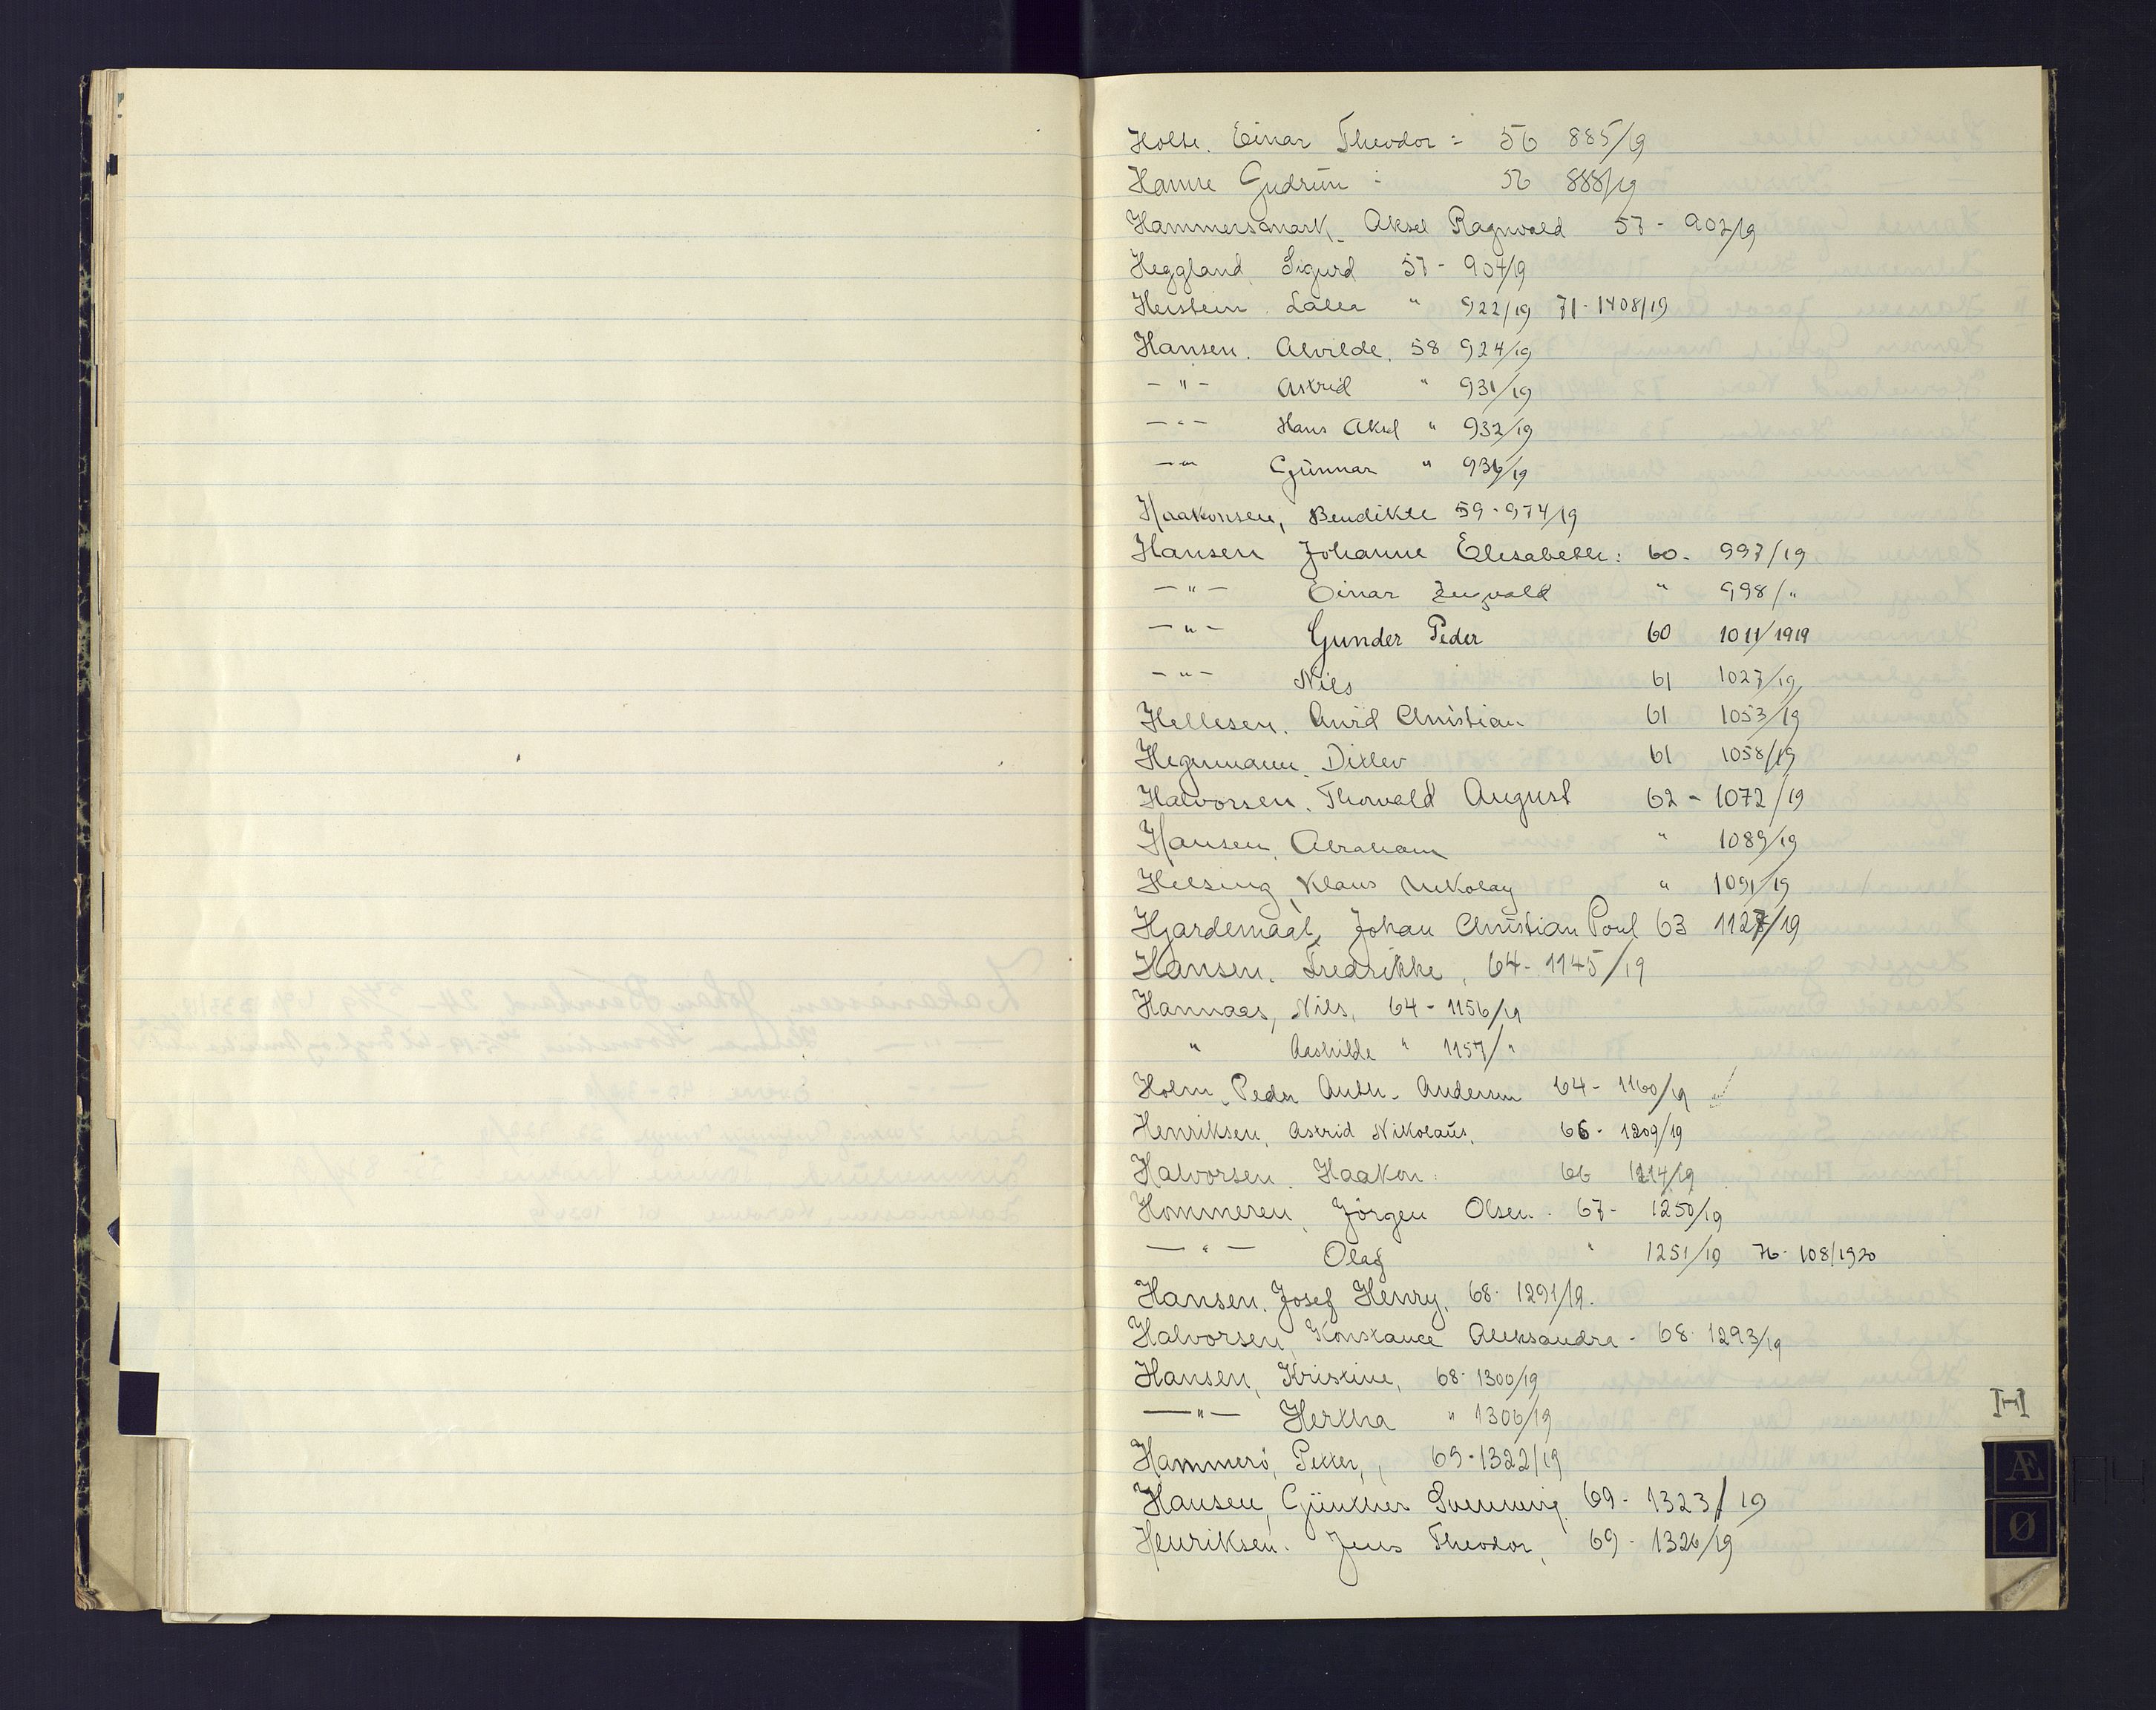 Holte. Einar Theodor = 56 885/19
Hamre Gudrun : 56 888/19
Hammersmark. Aksel Ragnvald 57 - 902/19
Heggland Sigurd 57 - 904/19
Heistein. Lalla " 922/19 71 - 1408/19
Hansen. Alvilde. 58 924/19
- " - Astrid " 931/19
- " - Hans Aksel " 932/19
- " Gunnar " 936/19
Haakonsen, Bendikte 59 - 974/19
Hansen Johanne Elisabeth : 60 - 997/19
- " - Einar " 998/"
- " - Gunder Peder 60 1011/1919
- " - Nils 61 1027/19
Hellesen. Arvid Christian 61 1053/19
Hegnmann. Ditlev 61 1058/19
Halvorsen. Thorvald August 62 - 1072/19
Hansen, Abraham " 1089/19
Helsing, Klaus Nikolay " 1091/19
Hjardemaal, Johan Christian Poul 63 1127/19
Hansen. Fredrikke, 64 - 1145/19
Hannaas, Nils, 64 - 1156/19
" Aashilde " 1157/"
Holm, Peder Anth. Andersen 64 - 1160/19
Henriksen, Astrid Nikolaus. 66 - 1209/19
Halvorsen. Haakon : 66 1214/19
Hommeren, Jörgen Olsen. 67 - 1250/19
- " - Olaf " 1251/19 76 - 108/1920
Hansen. Josef Henry. 68 - 1291/19.
Halvorsen, Konstance Aleksandra - 68 1293/19
Hansen, Kristine, 68 - 1300/19
- " - Hertha " 1306/19
Hammerö, Petter, , 69 - 1322/19
Hansen, Günther 69 - 1323/19
Henriksen. Jens Theodor, 69 - 1326/19
H
Æ
Ø